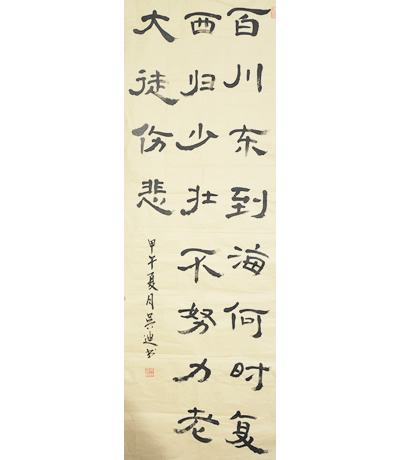 百川东到海何时复
西归少壮不努力老
大徒伤悲
甲午夏月吴迪书